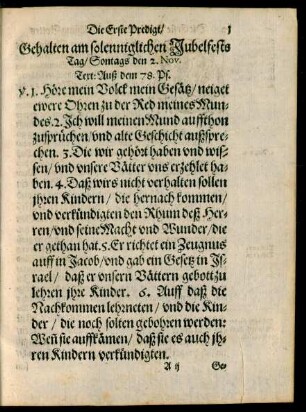 Die Erste Predigt/ 1
Gehalten am solenniglichen Jubelfests
Tag/ Sontags den 2. Nov.
Text: Auß dem 78. Ps.
v. 1. Höre mein Volck mein Gesätz/ neiget
ewere Ohren zu der Red meines Mun-
des. 2. Ich will meinen Mund auffthon
zu sprüchen/ vnd alte Geschicht außspre-
chen. 3. Die wir gehört haben vnd wis-
sen/ vnd vnsere Vätter vns erzehlet ha-
ben. 4. Daß wirs nicht verhalten sollen
jhren Kindern/ die hernach kommen/
vnd verkündigten den Rhum deß Her-
ren/ vnd seine Macht vnd Wunder/ die
er gethan hat. 5. Er richtet ein Zeugnus
auff in Jacob/ vnd gab ein Gesetz in Js-
rael/ daß er vnsern Vättern gebott zu
lehren jhre Kinder. 6. Auff daß die
Nachkommen lehrneten/ vnd die Kin-
der/ die noch solten gebohren werden:
Weñ sie auffkämen/ daß sie es auch jh-
ren Kindern verkündigten.
A ij Ge-